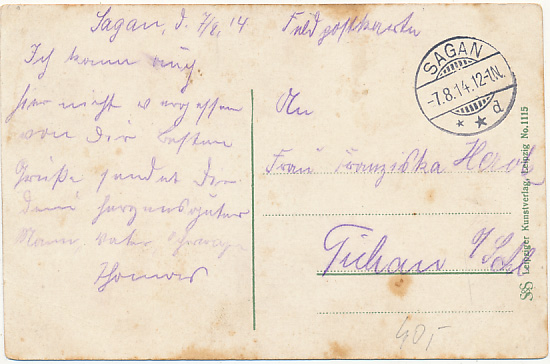 Sagan, d. 7/8. 14
Feldpostkarte
SAGAN
-7.8.14.12-1N.
* * d
Ich kann auch
hier nicht vergessen
von dir besten
Grüße sendet dir
dein herzensguter
Mann, Vater
Thomas
An
Frau Franziska
Tichau
40,-
Leipziger Kunstverlag, Leipzig No. 1115